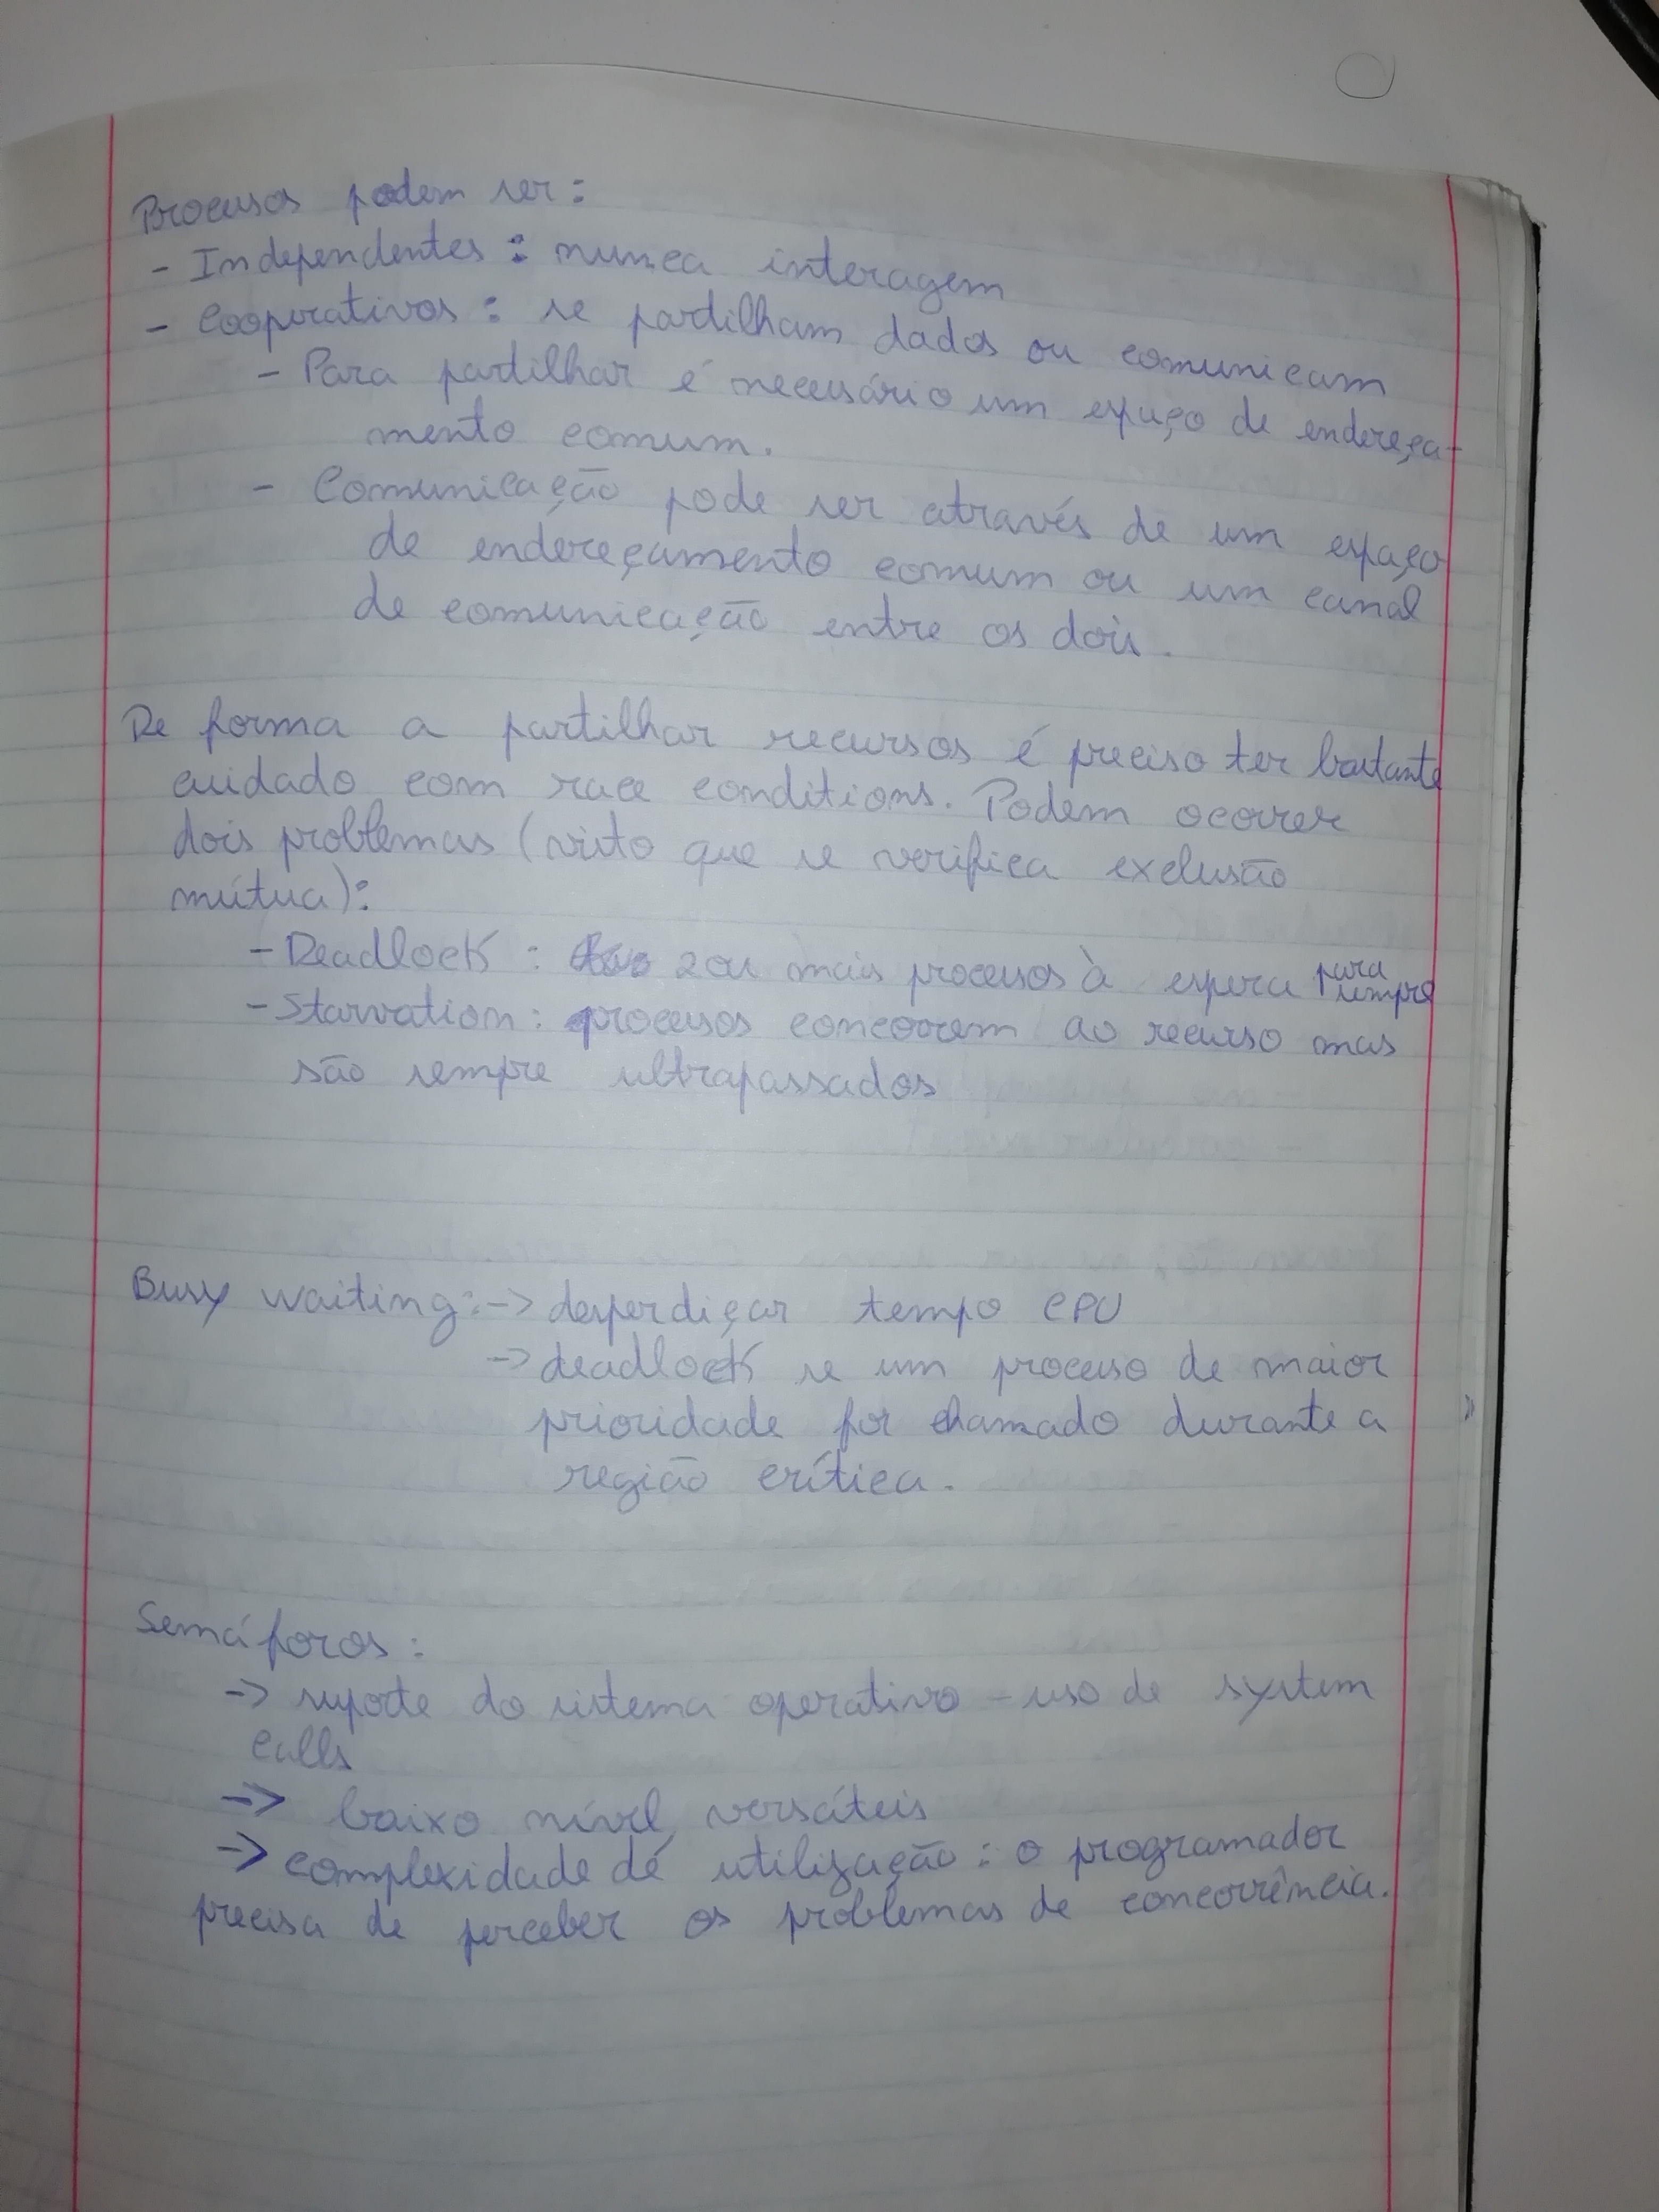 Processos podem ser:
- Independentes: nunca interagem
- Cooperativos: se partilham dados ou comunicam
- Para partilhar é necessário um espaço de endereça-
mento comum.
- Comunicação pode ser através de um espaço
de endereçamento comum ou um canal
de comunicação entre os dois.
De forma a partilhar recursos é preciso ter bastante
cuidado com race conditions. Podem ocorrer
dois problemas (visto que se verifica exclusão
mútua):
- Deadlock: 2 ou mais processos à espera para sempre
- Starvation: processos concorrem ao recurso mas
são sempre ultrapassados
Busy waiting: -> desperdiçar tempo CPU
-> deadlock se um processo de maior
prioridade for chamado durante a
região crítica.
Semáforos:
-> suporte do sistema operativo - uso de system
calls
-> baixo nível, versáteis
-> complexidade de utilização: o programador
precisa de perceber os problemas de concorrência.